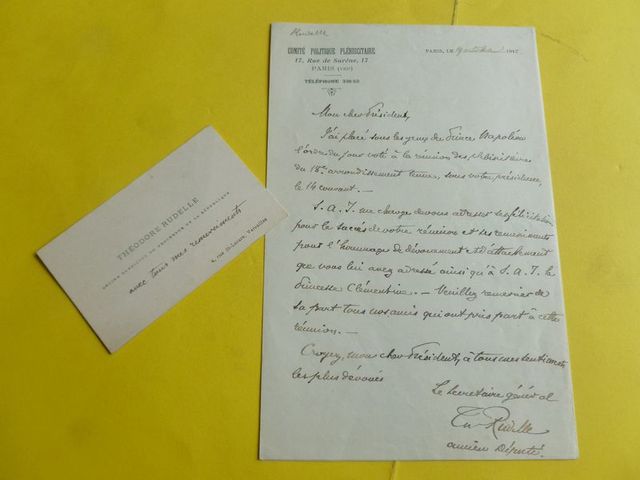 Rudelle
COMITÉ POLITIQUE PLÉBISCITAIRE
17, Rue de Surène, 17
PARIS (VIIIe)
TÉLÉPHONE
PARIS, LE 19 octobre 1912
Mon cher Président,
J'ai placé sous les yeux du Prince Napoléon
l'ordre du jour voté à la réunion des plébiscitaires
du 18e arrondissement tenue, sous votre présidence,
le 14 courant. —
S. A. I. me charge de vous adresser ses félicitations
pour le succès de votre réunion et ses remerciements
pour l'hommage de dévouement et d'attachement
que vous lui avez adressé ainsi qu'à S. A. I. la
Princesse Clémentine. — Veuillez remercier de
sa part tous nos amis qui ont pris part à cette
réunion. —
Croyez, mon cher Président, à tous mes sentiments
les plus dévoués
Le Secrétaire général
Th Rudelle
ancien Député.
THÉODORE RUDELLE
ANCIEN
avec tous mes remerciements
4, rue St-Louis, Versailles